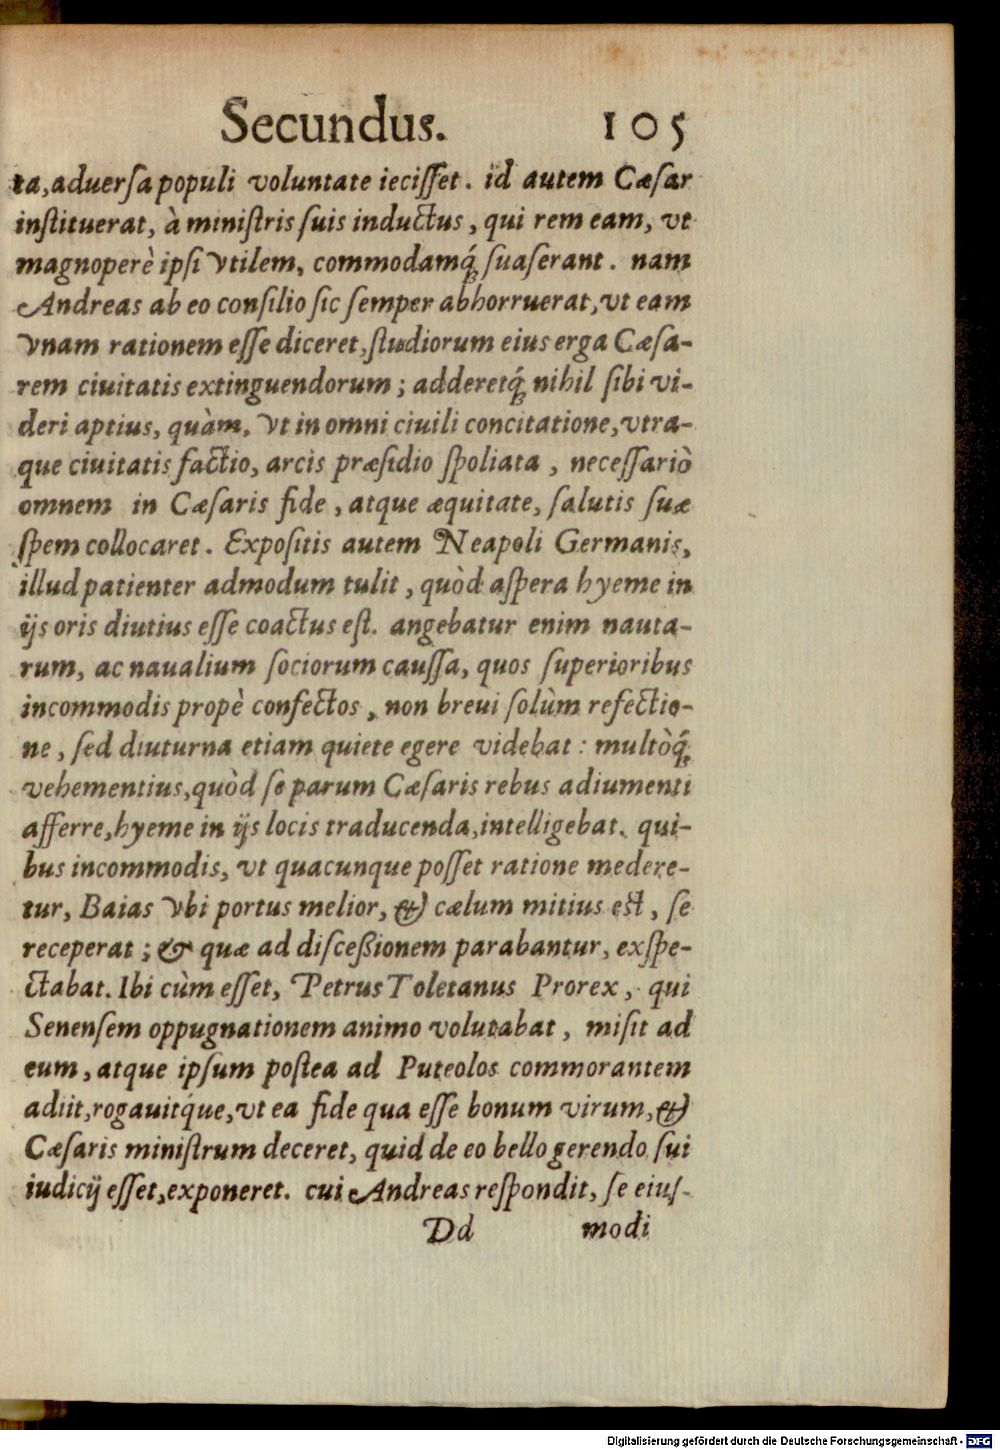 Secundus. 105
ta,aduersa populi voluntate iecisset. id autem Cæsar
instituerat, à ministris suis inductus, qui rem eam, vt
magnoperè ipsi vtilem, commodamq́; suaserant. nam
Andreas ab eo consilio sic semper abhorruerat,vt eam
vnam rationem esse diceret,studiorum eius erga Cæsa-
rem ciuitatis extinguendorum; adderetq́; nihil sibi vi-
deri aptius, quàm, vt in omni ciuili concitatione,vtra-
que ciuitatis factio, arcis præsidio spoliata, necessariò
omnem in Cæsaris fide, atque æquitate, salutis suæ
spem collocaret. Expositis autem Neapoli Germanis,
illud patienter admodum tulit, quòd aspera hyeme in
ijs oris diutius esse coactus est. angebatur enim nauta-
rum, ac naualium sociorum caussa, quos superioribus
incommodis propè confectos, non breui solùm refectio-
ne, sed diuturna etiam quiete egere videbat: multòq́;
vehementius,quòd se parum Cæsaris rebus adiumenti
afferre,hyeme in ijs locis traducenda,intelligebat. qui-
bus incommodis, vt quacunque posset ratione medere-
tur, Baias vbi portus melior, & cælum mitius est, se
receperat; & quæ ad discessionem parabantur, exspe-
ctabat. Ibi cùm esset, Petrus Toletanus Prorex, qui
Senensem oppugnationem animo volutabat, misit ad
eum, atque ipsum postea ad Puteolos commorantem
adiit,rogauitq́ue,vt ea fide qua esse bonum virum, &
Cæsaris ministrum deceret, quid de eo bello gerendo sui
iudicij esset,exponeret. cui Andreas respondit, se eius-
Dd modi
Digitalisierung gefördert durch die Deutsche Forschungsgemeinschaft - DFG